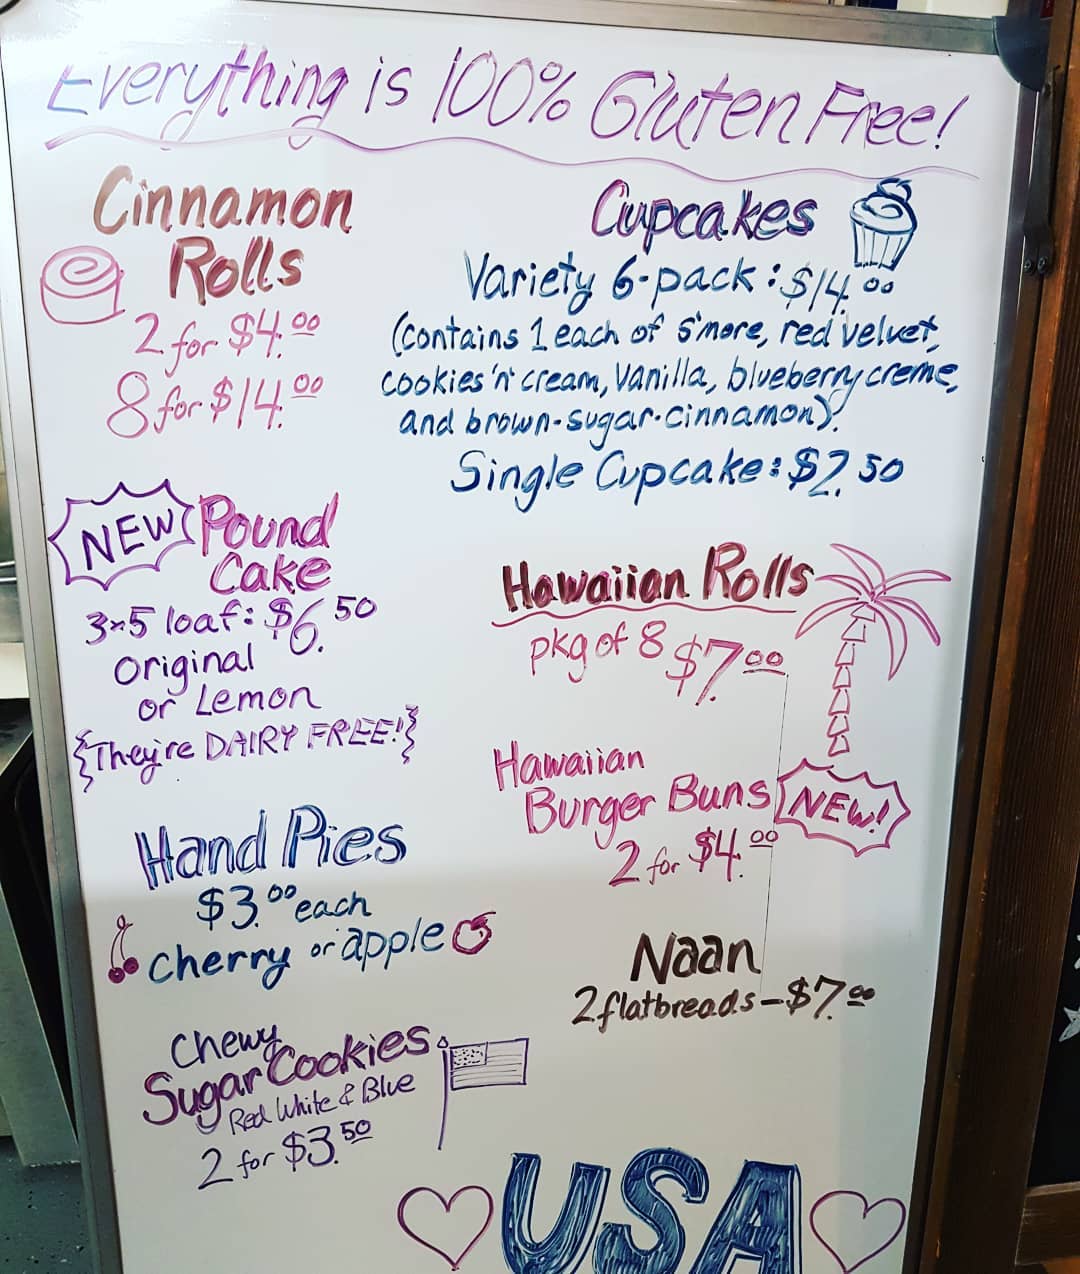 Everything is 100% Gluten Free!
Cinnamon
Rolls
2 for $4.00
8 for $14.00
NEW Pound
Cake
3x5 loaf: $6.50
Original
or Lemon
{They're DAIRY FREE!}
Hand Pies
$3.00 each
cherry or apple
Chewy
Sugar Cookies
Red White & Blue
2 for $3.50
Cupcakes
Variety 6-pack: $14.00
(contains 1 each of s'more, red velvet,
cookies 'n' cream, vanilla, blueberry creme,
and brown-sugar-cinnamon).
Single Cupcake: $2.50
Hawaiian Rolls
pkg of 8 $7.00
Hawaiian
Burger Buns NEW!
2 for $4.00
Naan
2 flatbreads - $7.00
USA